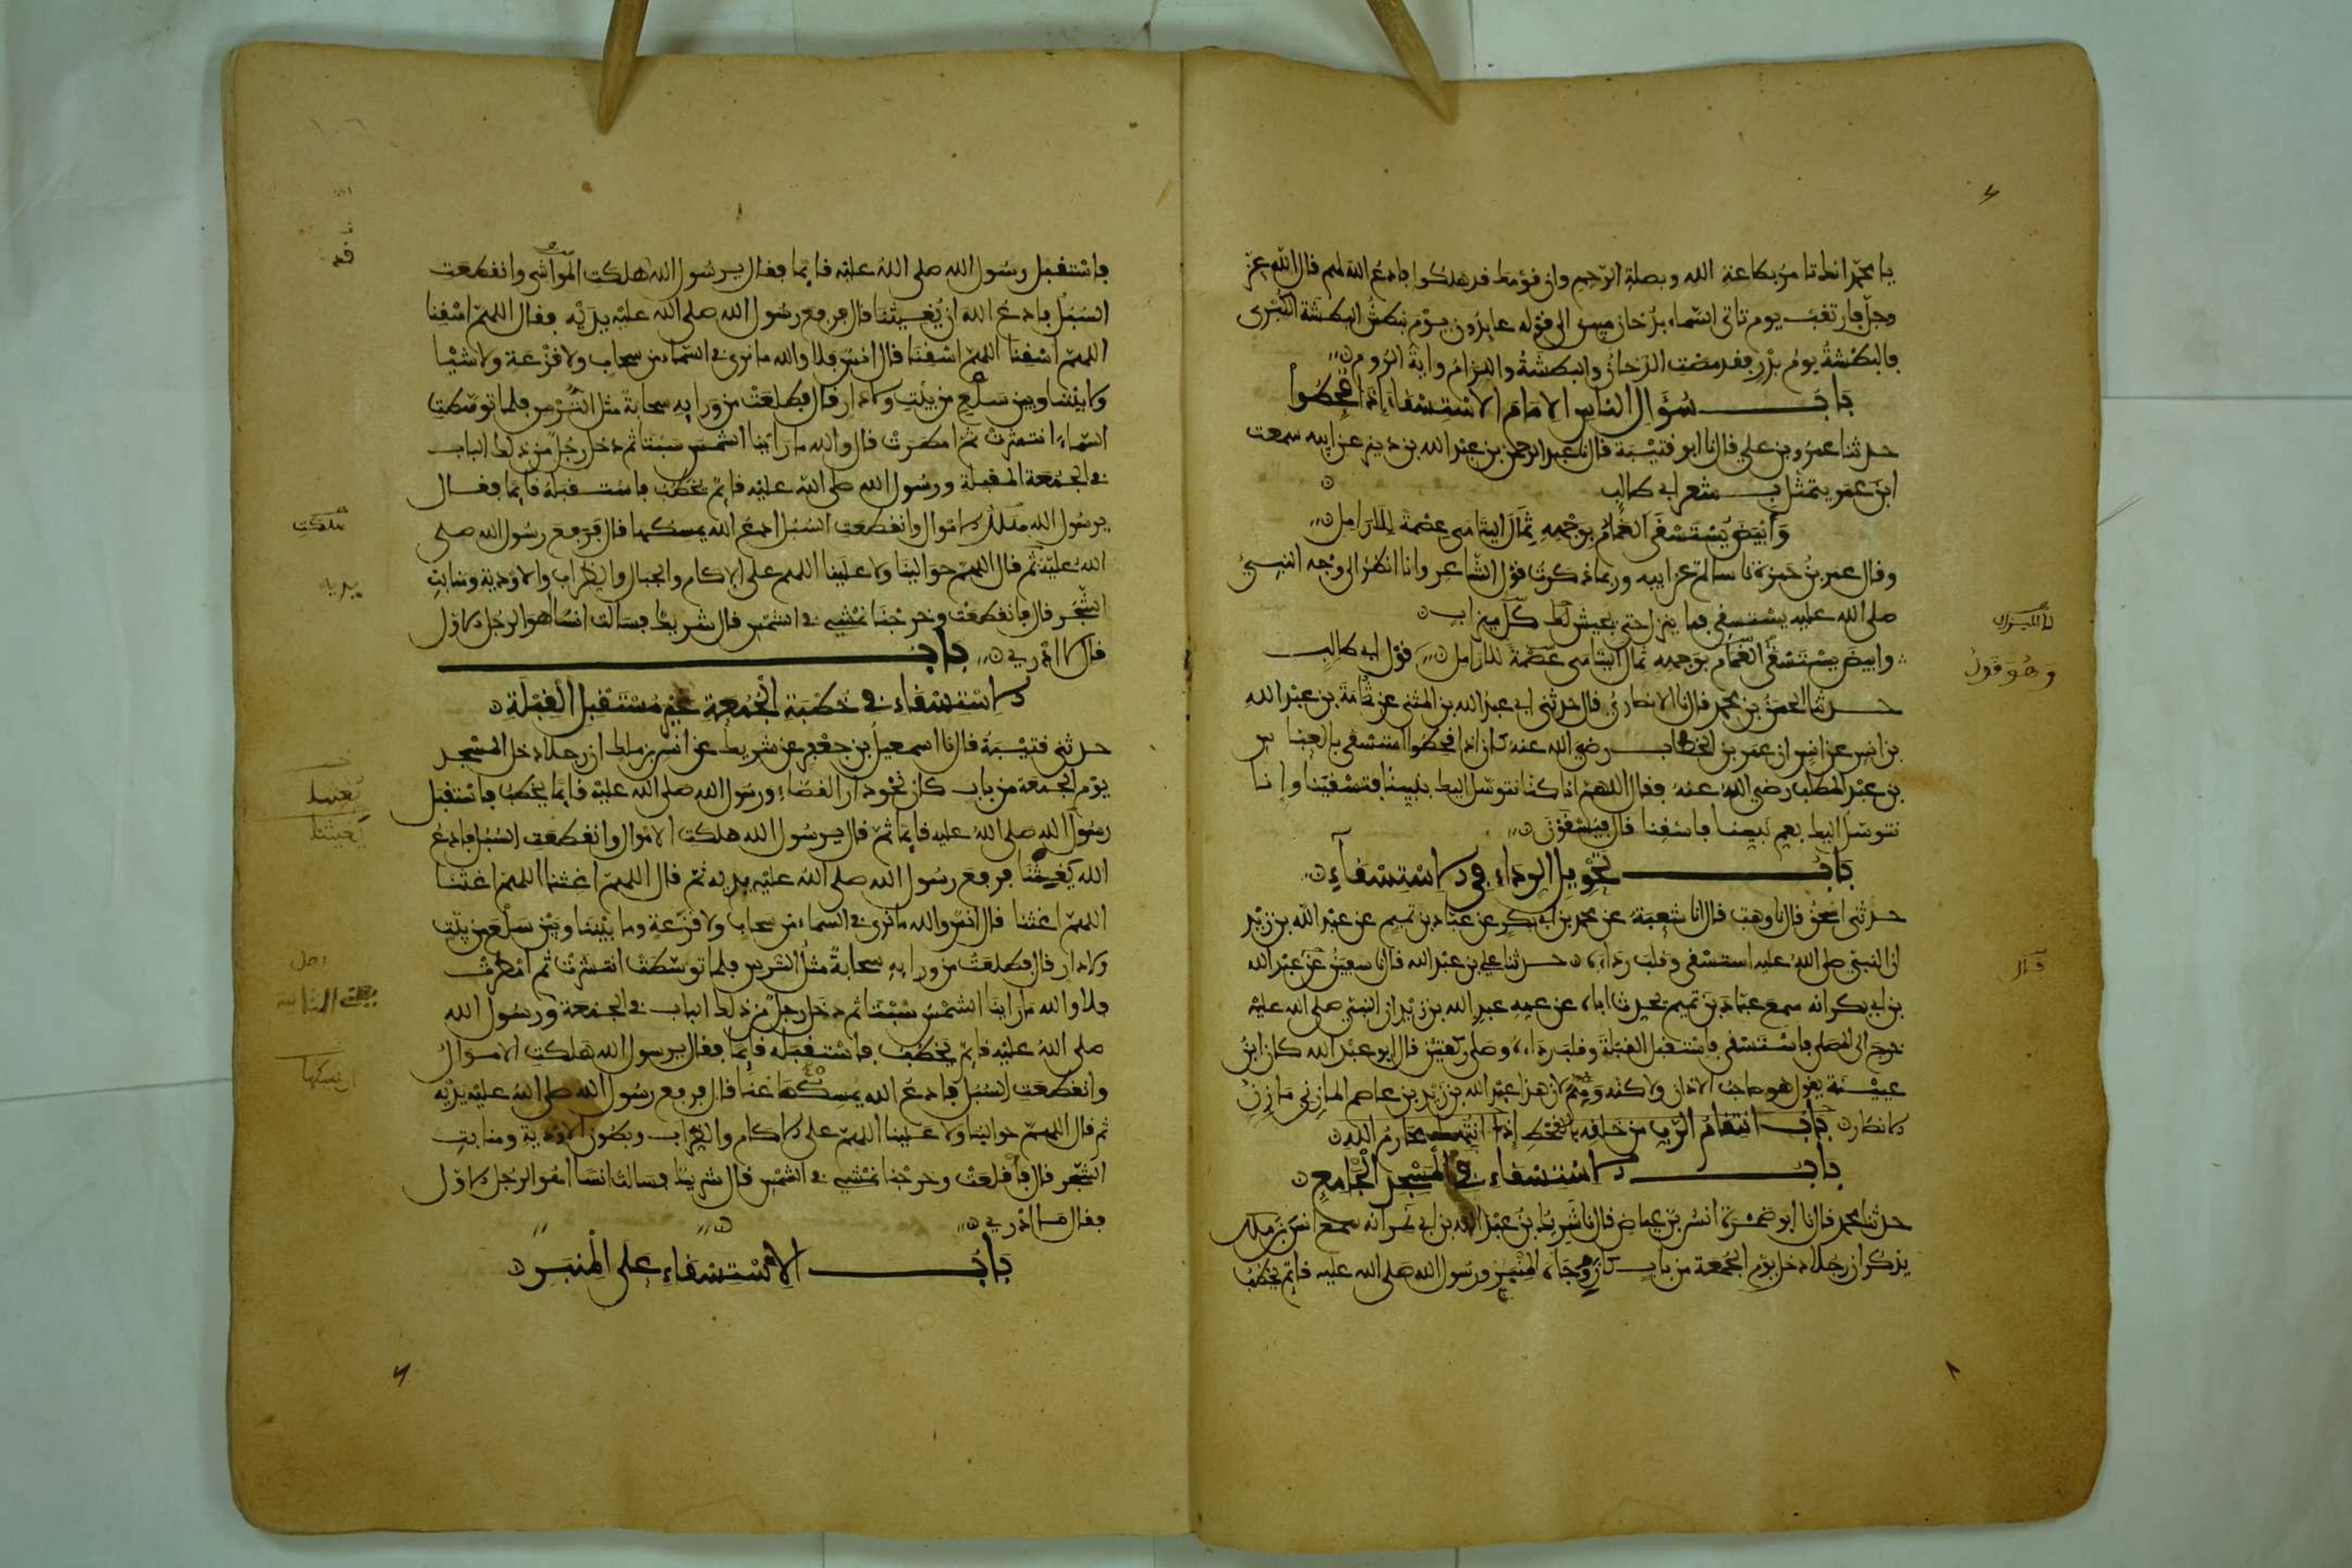 يا محمد انك تامر بطاعة الله وبصلة الرحم وان قومك قد هلكوا فادع الله لهم قال الله عز
وجل فارتقب يوم تاتي السماء بدخان مبين الى قوله عايدون يوم نبطش البطشة الكبرى
فالبطشة يوم بدر فقد مضت الدخان والبطشة واللزام واية الروم
باب سؤال الناس الامام الاستسقاء اذا قحطوا
حدثنا عمرو بن علي قال نا ابو قتيبة قال نا عبد الرحمن بن عبد الله بن دينر عن ابيه سمعت
ابن عمر يتمثل بشعر ابي طالب
وَأَبْيَضَ يُسْتَسْقَى الغَمَامُ بِوَجْهِهِ ثِمَالَ اليتامى عِصْمَةً لِلْأَرَامِلِ
وقال عمر بن حمزة نا سالم عن ابيه وربما ذكرت قول الشاعر وانا انظر الى وجه النبي
صلى الله عليه يستسقي فما ينزل حتى يجيش لك كل ميزاب
وابيض يستسقى الغمام بوجهه ثمال اليتامى عصمة للارامل قول ابي طالب
حدثنا الحسن بن محمد قال نا الانصاري قال حدثني ابي عبد الله بن المثنى عن ثمامة بن عبد الله
بن انس عن انس ان عمر بن الخطاب رضي الله عنه كان اذا قحطوا استسقى بالعباس
بن عبد المطلب رضي الله عنه فقال اللهم انا كنا نتوسل اليك بنبينا فتسقينا وانا
نتوسل اليك بعم نبينا فاسقنا قال فيسقون
باب تحويل الرداء في الاستسقاء
حدثني اسحق قال نا وهب قال انا شعبة عن محمد بن ابي بكر عن عباد بن تميم عن عبد الله بن زيد
ان النبي صلى الله عليه استسقى وقلب رداءه حدثنا علي بن عبد الله قال نا سفين عن عبد الله
بن ابي بكر انه سمع عباد بن تميم يحدث اباه عن عمه عبد الله بن زيد ان النبي صلى الله عليه
خرج الى المصلى فاستسقى فاستقبل القبلة وقلب رداءه وصلى ركعتين قال ابو عبد الله كان ابن
عيينة يقول هو صاحب الاذان ولاكنه وهم لان هذا عبد الله بن زيد بن عاصم المازني مازن
الانصار باب انتقام الرب من خلقه بالقحط اذا انتهك محارم الله
باب الاستسقاء في المسجد الجامع
حدثنا محمد قال نا ابو ضمرة انس بن عياض قال نا شريك بن عبد الله بن ابي نمر انه سمع انس بن ملك
يذكر ان رجلا دخل يوم الجمعة من باب كان وجاه المنبر ورسول الله صلى الله عليه قايم يخطب
وهو قول
قال
فاستقبل رسول الله صلى الله عليه قايما فقال يرسول الله هلكت المواشي وانقطعت
السبل فادع الله ان يغيثنا قال فرفع رسول الله صلى الله عليه يديه فقال اللهم اسقنا
اللهم اسقنا اللهم اسقنا قال انس فلا والله ما نرى في السماء من سحاب ولا قزعة ولا شيئا
وما بيننا وبين سلع من بيت ولا دار قال فطلعت من ورايه سحابة مثل الترس فلما توسطت
السماء انتشرت ثم امطرت قال والله ما راينا الشمس سبتا ثم دخل رجل من ذلك الباب
في الجمعة المقبلة ورسول الله صلى الله عليه قايم يخطب فاستقبله قايما فقال
يرسول الله هلكت الاموال وانقطعت السبل ادع الله يمسكها قال فرفع رسول الله صلى
الله عليه ثم قال اللهم حوالينا ولا علينا اللهم على الاكام والجبال والظراب والاودية ومنابت
الشجر قال فانقطعت وخرجنا نمشي في الشمس قال شريك فسالت انسا اهو الرجل الاول
قال لا ادري باب
الاستسقاء في خطبة الجمعة غير مستقبل القبلة
حدثني قتيبة قال نا اسمعيل بن جعفر عن شريك عن انس بن ملك ان رجلا دخل المسجد
يوم الجمعة من باب كان نحو دار القضاء ورسول الله صلى الله عليه قايما يخطب فاستقبل
رسول الله صلى الله عليه قايما ثم قال يرسول الله هلكت الاموال وانقطعت السبل فادع
الله يغيثنا فرفع رسول الله صلى الله عليه يديه ثم قال اللهم اغثنا اللهم اغثنا
اللهم اغثنا قال انس والله ما نرى في السماء من سحاب ولا قزعة وما بيننا وبين سلع من بيت
ولا دار قال فطلعت من ورايه سحابة مثل الترس فلما توسطت انتشرت ثم امطرت
فلا والله ما راينا الشمس سبتا ثم دخل رجل من ذلك الباب في الجمعة ورسول الله
صلى الله عليه قايم يخطب فاستقبله قايما فقال يرسول الله هلكت الاموال
وانقطعت السبل فادع الله يمسكها عنا قال فرفع رسول الله صلى الله عليه يديه
ثم قال اللهم حوالينا ولا علينا اللهم على الاكام والظراب وبطون الاودية ومنابت
الشجر قال فاقلعت وخرجنا نمشي في الشمس قال شريك فسالت انسا اهو الرجل الاول
فقال ما ادري
باب الاستسقاء على المنبر
هلكت
يديه
يغيثنا